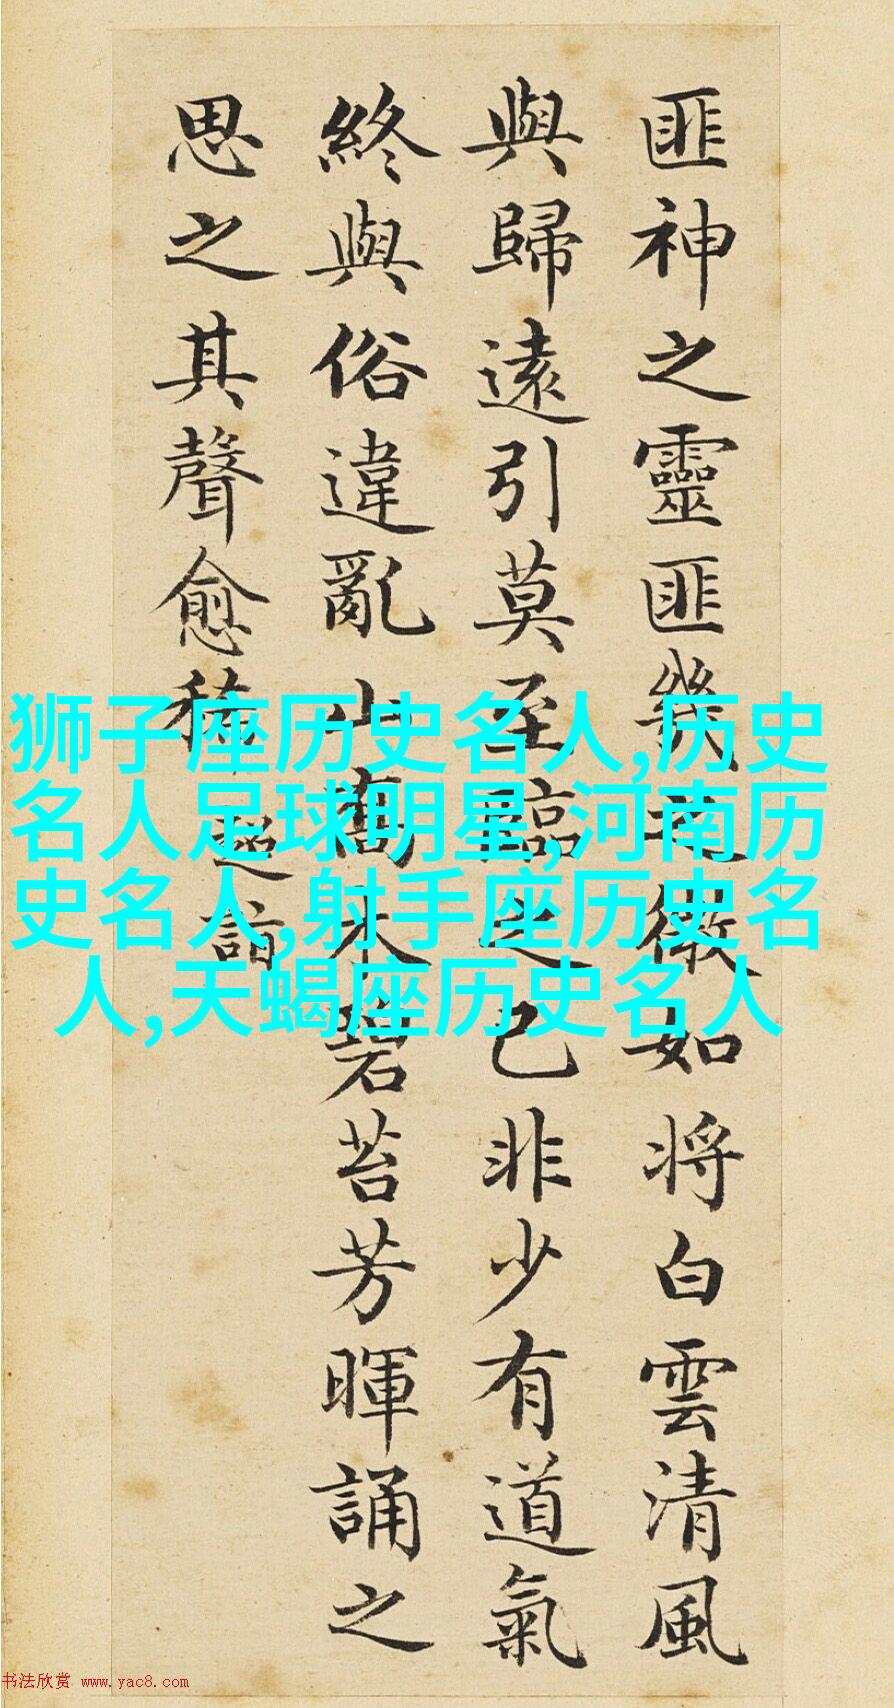 匪神之靈匪幾之微如将白雲清風
與歸遠引莫至臨之已非少有道氣
終與俗違亂山喬木碧苔芳暉誦之
思之其聲愈稀
超詣
狮子座历史名人,历史
名人足球明星,河南历
史名人,射手座历史名
人,天蝎座历史名人
书法欣赏 www.yac8.com